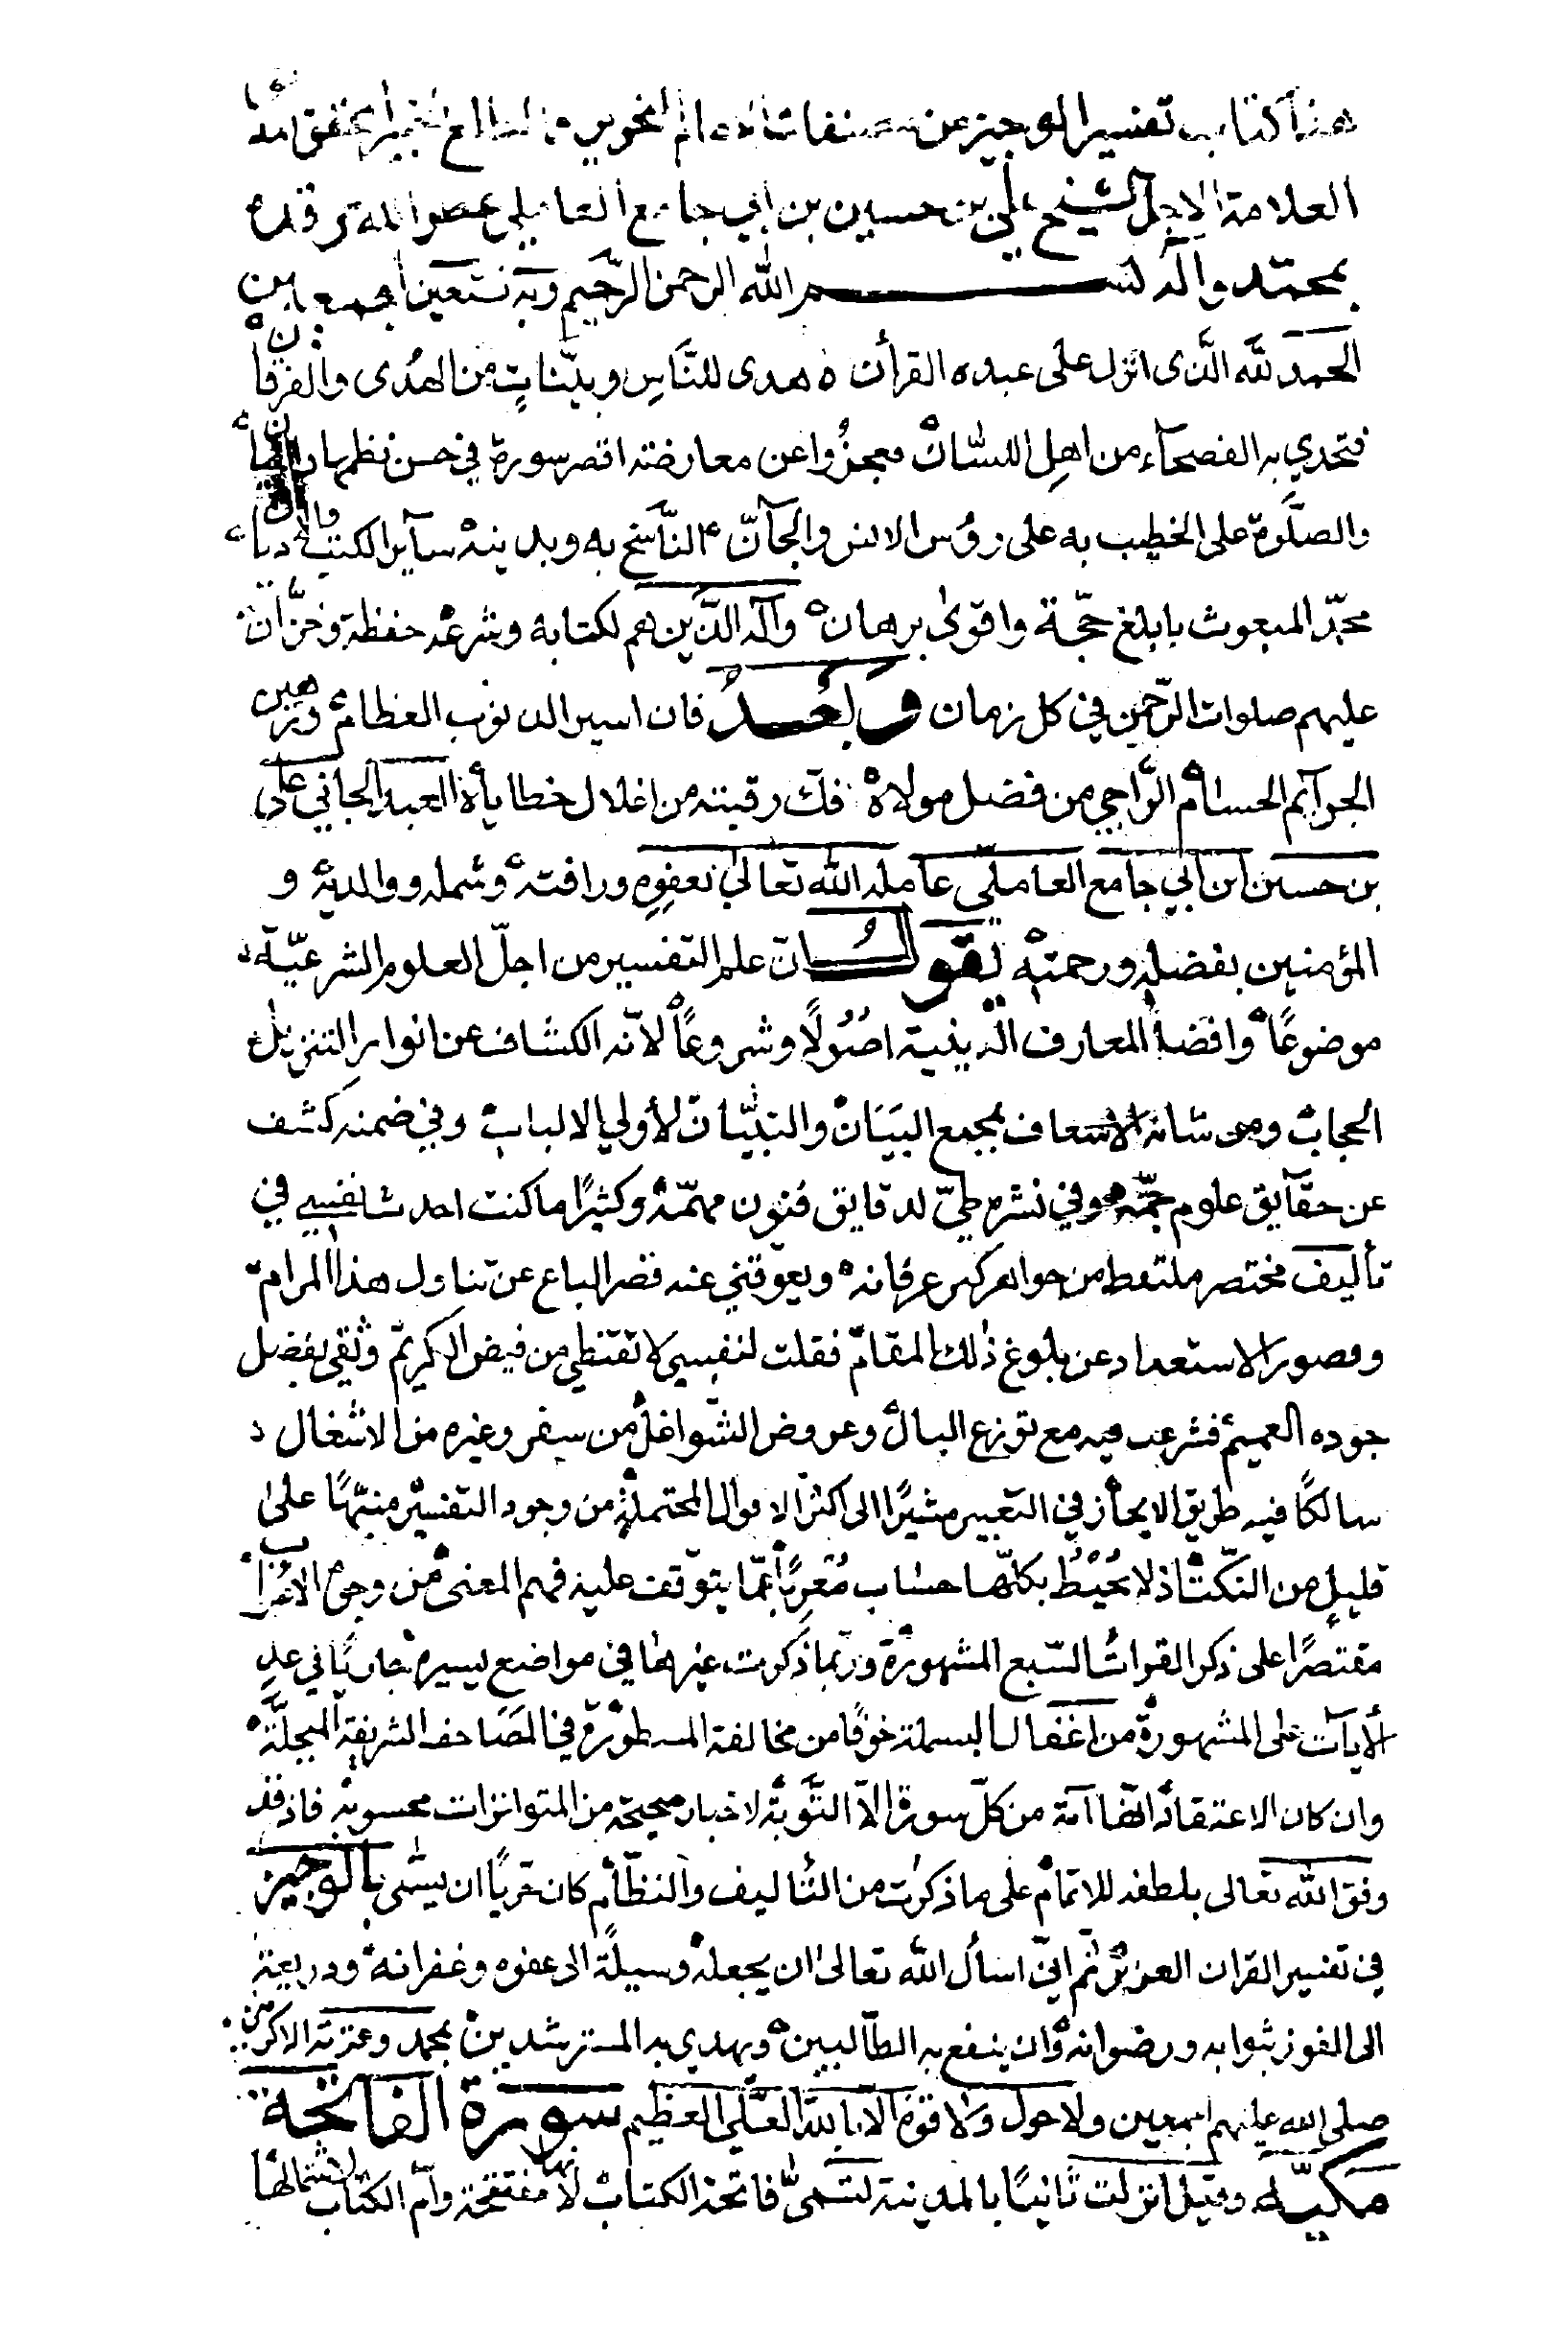 هذا كتاب تفسير الوجيز من مصنفات العالم النحرير المحقق
العلامة الاجل الشيخ علي بن حسين بن ابي جامع العاملي عطر الله مرقده
بمحمّد وآله بسم الله الرحمن الرّحيم وبه نستعين اجمعين
الحمد لله الّذى انزل على عبده القرأن هدى للنّاس وبيّناتٍ من الهُدى والفرقان
فتحدي به الفصحآء من اهل اللسّان فعجزُوا عن معارضته اقصر سورة في حسن نظمها
والصلَّوة على الخطيب به على رؤس الانس والجآنّ النّاسخ به وبدينه سآير الكتب والاديان
محمّد المبعوث بابلغ حجّة واقوىٰ برهان وآله الذّين هم لكتابه وشرعه حفظة وخزّان
عليهم صلوات الرّحمن في كل زمان وبعُد فان اسير الذنوب العظام ورهين
الجرآئم الجسام الرّاجي من فضل مولاه فكّ رقبته من اغلال خطاياه العبد الجاني علي
بن حسين ابن ابي جامع العاملي عامله الله تعالى بعفوه ورافته وشمله ووالديه و
المؤمنين بفضله ورحمته يقول انّ علم التفسير من اجلّ العلوم الشرعيّة
موضوعًا وافضل المعارف الدّينية اصُولًا وشروعًا لانّه الكشاف عن انوار التنزيل
الحجاب ومن شانه الاسعاف بمجمع البيَان والتبيّان لأولي الالباب وفي ضمنه كشف
عن حقآيق علوم جمّة وفي نشره طيّ لدقايق فنون مهمّة وكثيرًا ما كنت احدث نفسي في
تأليف مختصر ملتقط من جواهر كنز عرفانه ويعوّقني عنه قصر الباع عن تناول هذا المرام
وقصور الاستعداد عن بلوغ ذلك المقام فقلت لنفسي لا تقنطي من فيض الكريم وثقي بفضل
جوده العميم فشرعت فيه مع توزع البال وعروض الشّواغل من سفر وغيره من الاشغال
سالكًا فيه طريق الايجاز في التعبير مشيرًا الى اكثر الاقوال المحتملة من وجوه التفسير منبّهًا علىٰ
قليلٍ من النكّت اذ لا يُحيْطُ بكلّها حساب مُعْرِبًا عمّا يتوّقف عليه فهم المعنى من وجوه الاعراب
مقتصرًا على ذكر القراءات السّبع المشهورة وربّما ذكرت غيرها في مواضع يسيرة جاريًا في عدِ
الأيآت على المشهورة من اغفال البسملة خوفًا من مخالفة المسطورة في المصَاحف الشريفة المبجلَّة
وان كان الاعتقاد انّها آية من كلّ سورة الاّ التّوبة لاخبار صحيحة من المتواترات محسوبة فاذ قد
وفق الله تعالى بلطفه للاتمام على ما ذكرت من التّأليف والنظّام كان حَريًّا ان يسمّى بالوجيز
في تفسير القران العزيز ثم انّي اسأل الله تعالىٰ ان يجعله وسيلةً الى عفوه وغفرانه وذريعة
الى الفوز بثوابه ورضوانه وان ينفع به الطّالبين ويهدي به المسترشدين بمحمد وعترته الاكرمين
صلى الله عليهم اجمعين ولا حول ولا قوة الا بالله العلّي العظيم سورة الفاتحة
مكيّة وقيل انزلت ثانيًا بالمدينة تسَمىّ فاتحة الكتاب لانّها مفتتحة وامّ الكتاب لاشتمالها